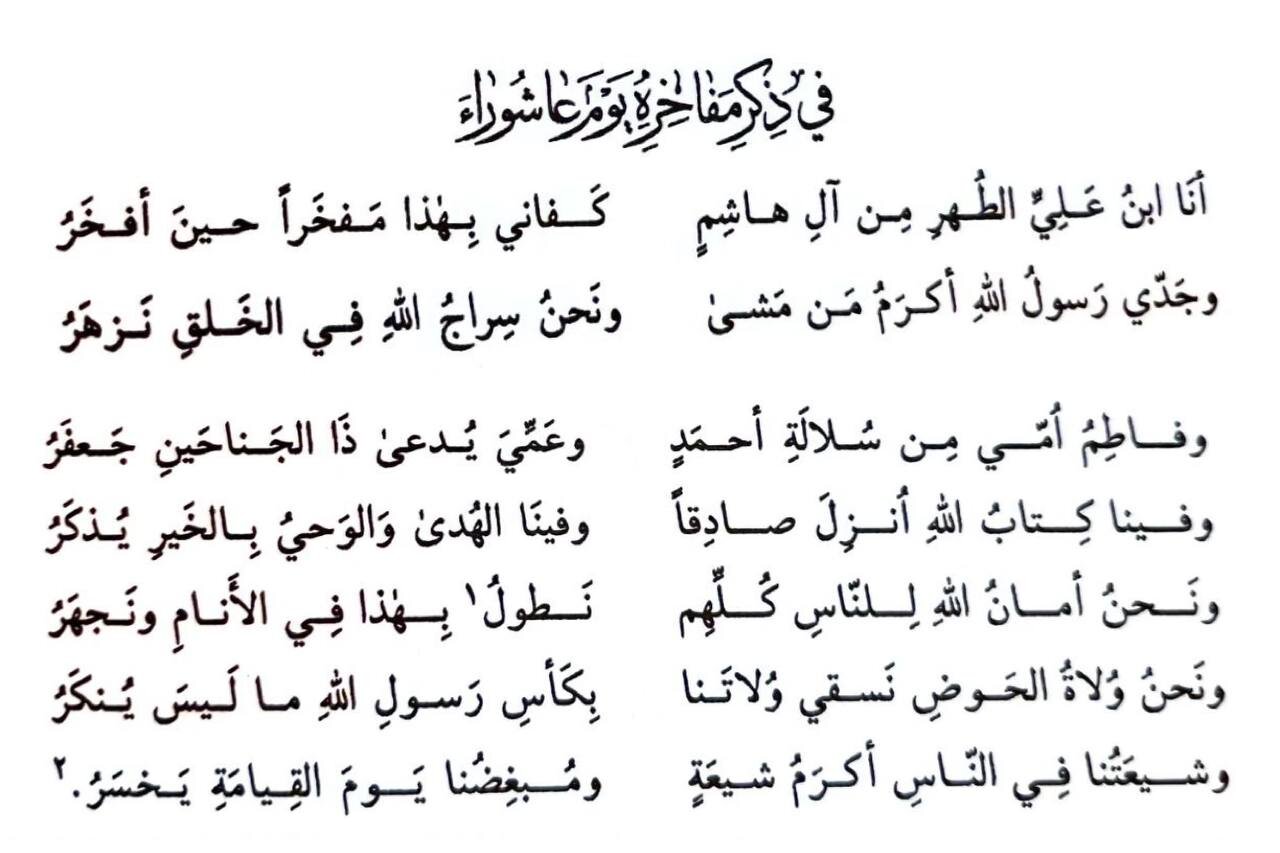 في ذِكرِ مَفاخِرِهِ يَوْمَ عاشُوراءَ
أنَا ابنُ عَلِيِّ الطُهرِ مِن آلِ هاشِمٍ كَفاني بِهٰذا مَفخَراً حينَ أفخَرُ
وجَدّي رَسولُ اللهِ أكرَمُ مَن مَشىٰ ونَحنُ سِراجُ اللهِ فِي الخَلقِ نَزهَرُ
وفاطِمُ اُمّي مِن سُلالَةِ أحمَدٍ وعَمِّيَ يُدعىٰ ذَا الجَناحَينِ جَعفَرُ
وفينا كِتابُ اللهِ اُنزِلَ صادِقاً وفينَا الهُدىٰ وَالوَحيُ بِالخَيرِ يُذكَرُ
ونَحنُ أمانُ اللهِ لِلنّاسِ كُلِّهِم نَطولُ١ بِهٰذا فِي الأَنامِ ونَجهَرُ
ونَحنُ وُلاةُ الحَوضِ نَسقي وُلاتَنا بِكَأسِ رَسولِ اللهِ ما لَيسَ يُنكَرُ
وشيعَتُنا فِي النّاسِ أكرَمُ شيعَةٍ ومُبغِضُنا يَومَ القِيامَةِ يَخسَرُ.٢